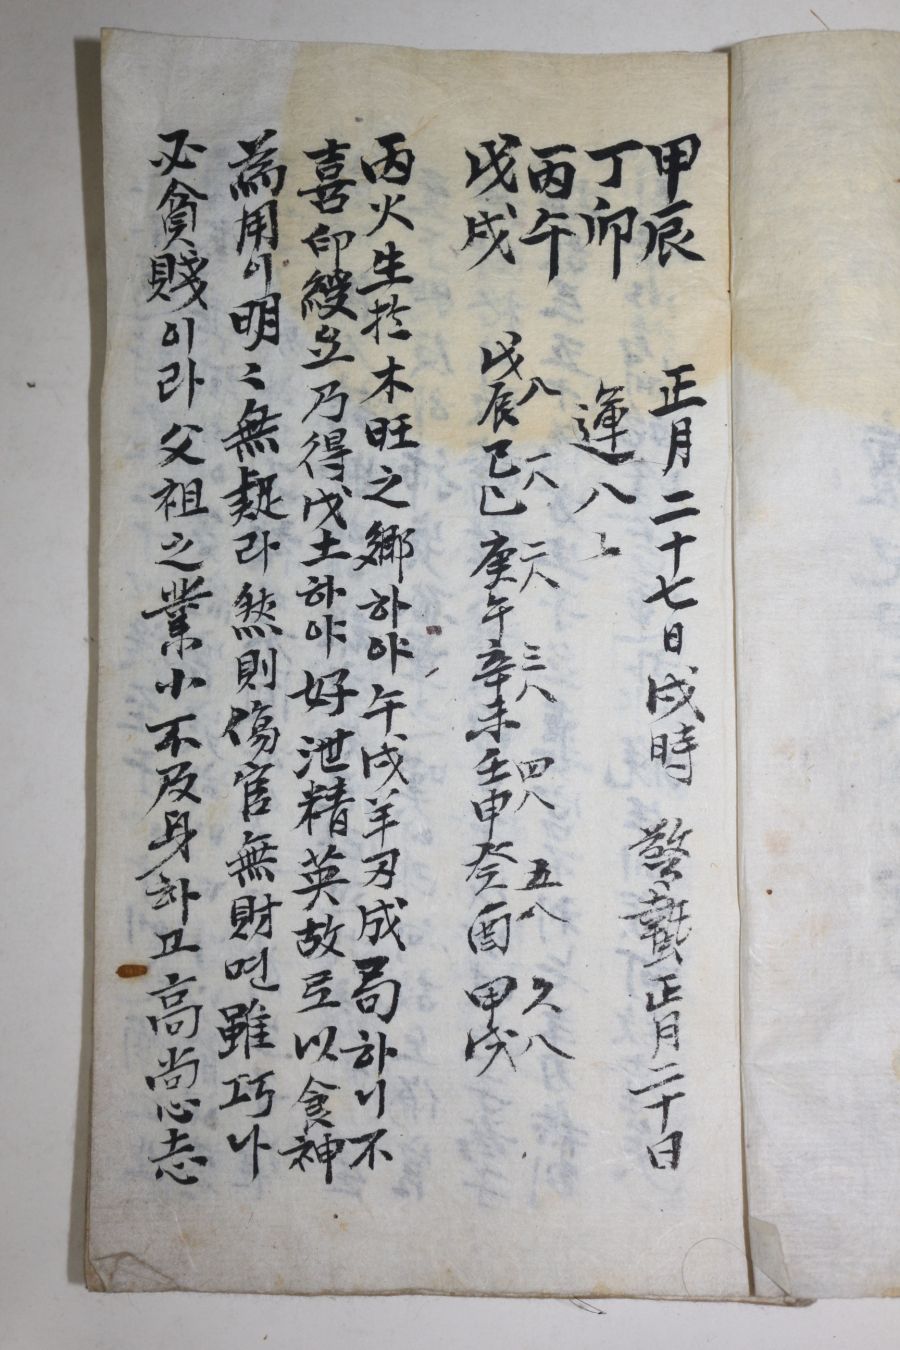 甲辰 正月二十七日戌時 驚蟄正月二十日
丁卯 運八
丙午 八 一八 二八 三八 四八 五八 六八
戊戌 戊辰 己巳 庚午 辛未 壬申 癸酉 甲戌
丙火生於木旺之鄕하야午戌羊刃成局하니不
喜印綬오乃得戊土하야好泄精英故로以食神
爲用이明〻無疑라然則傷官無財면雖巧나
必貧賤이라父祖之業小不及身하고高尙志